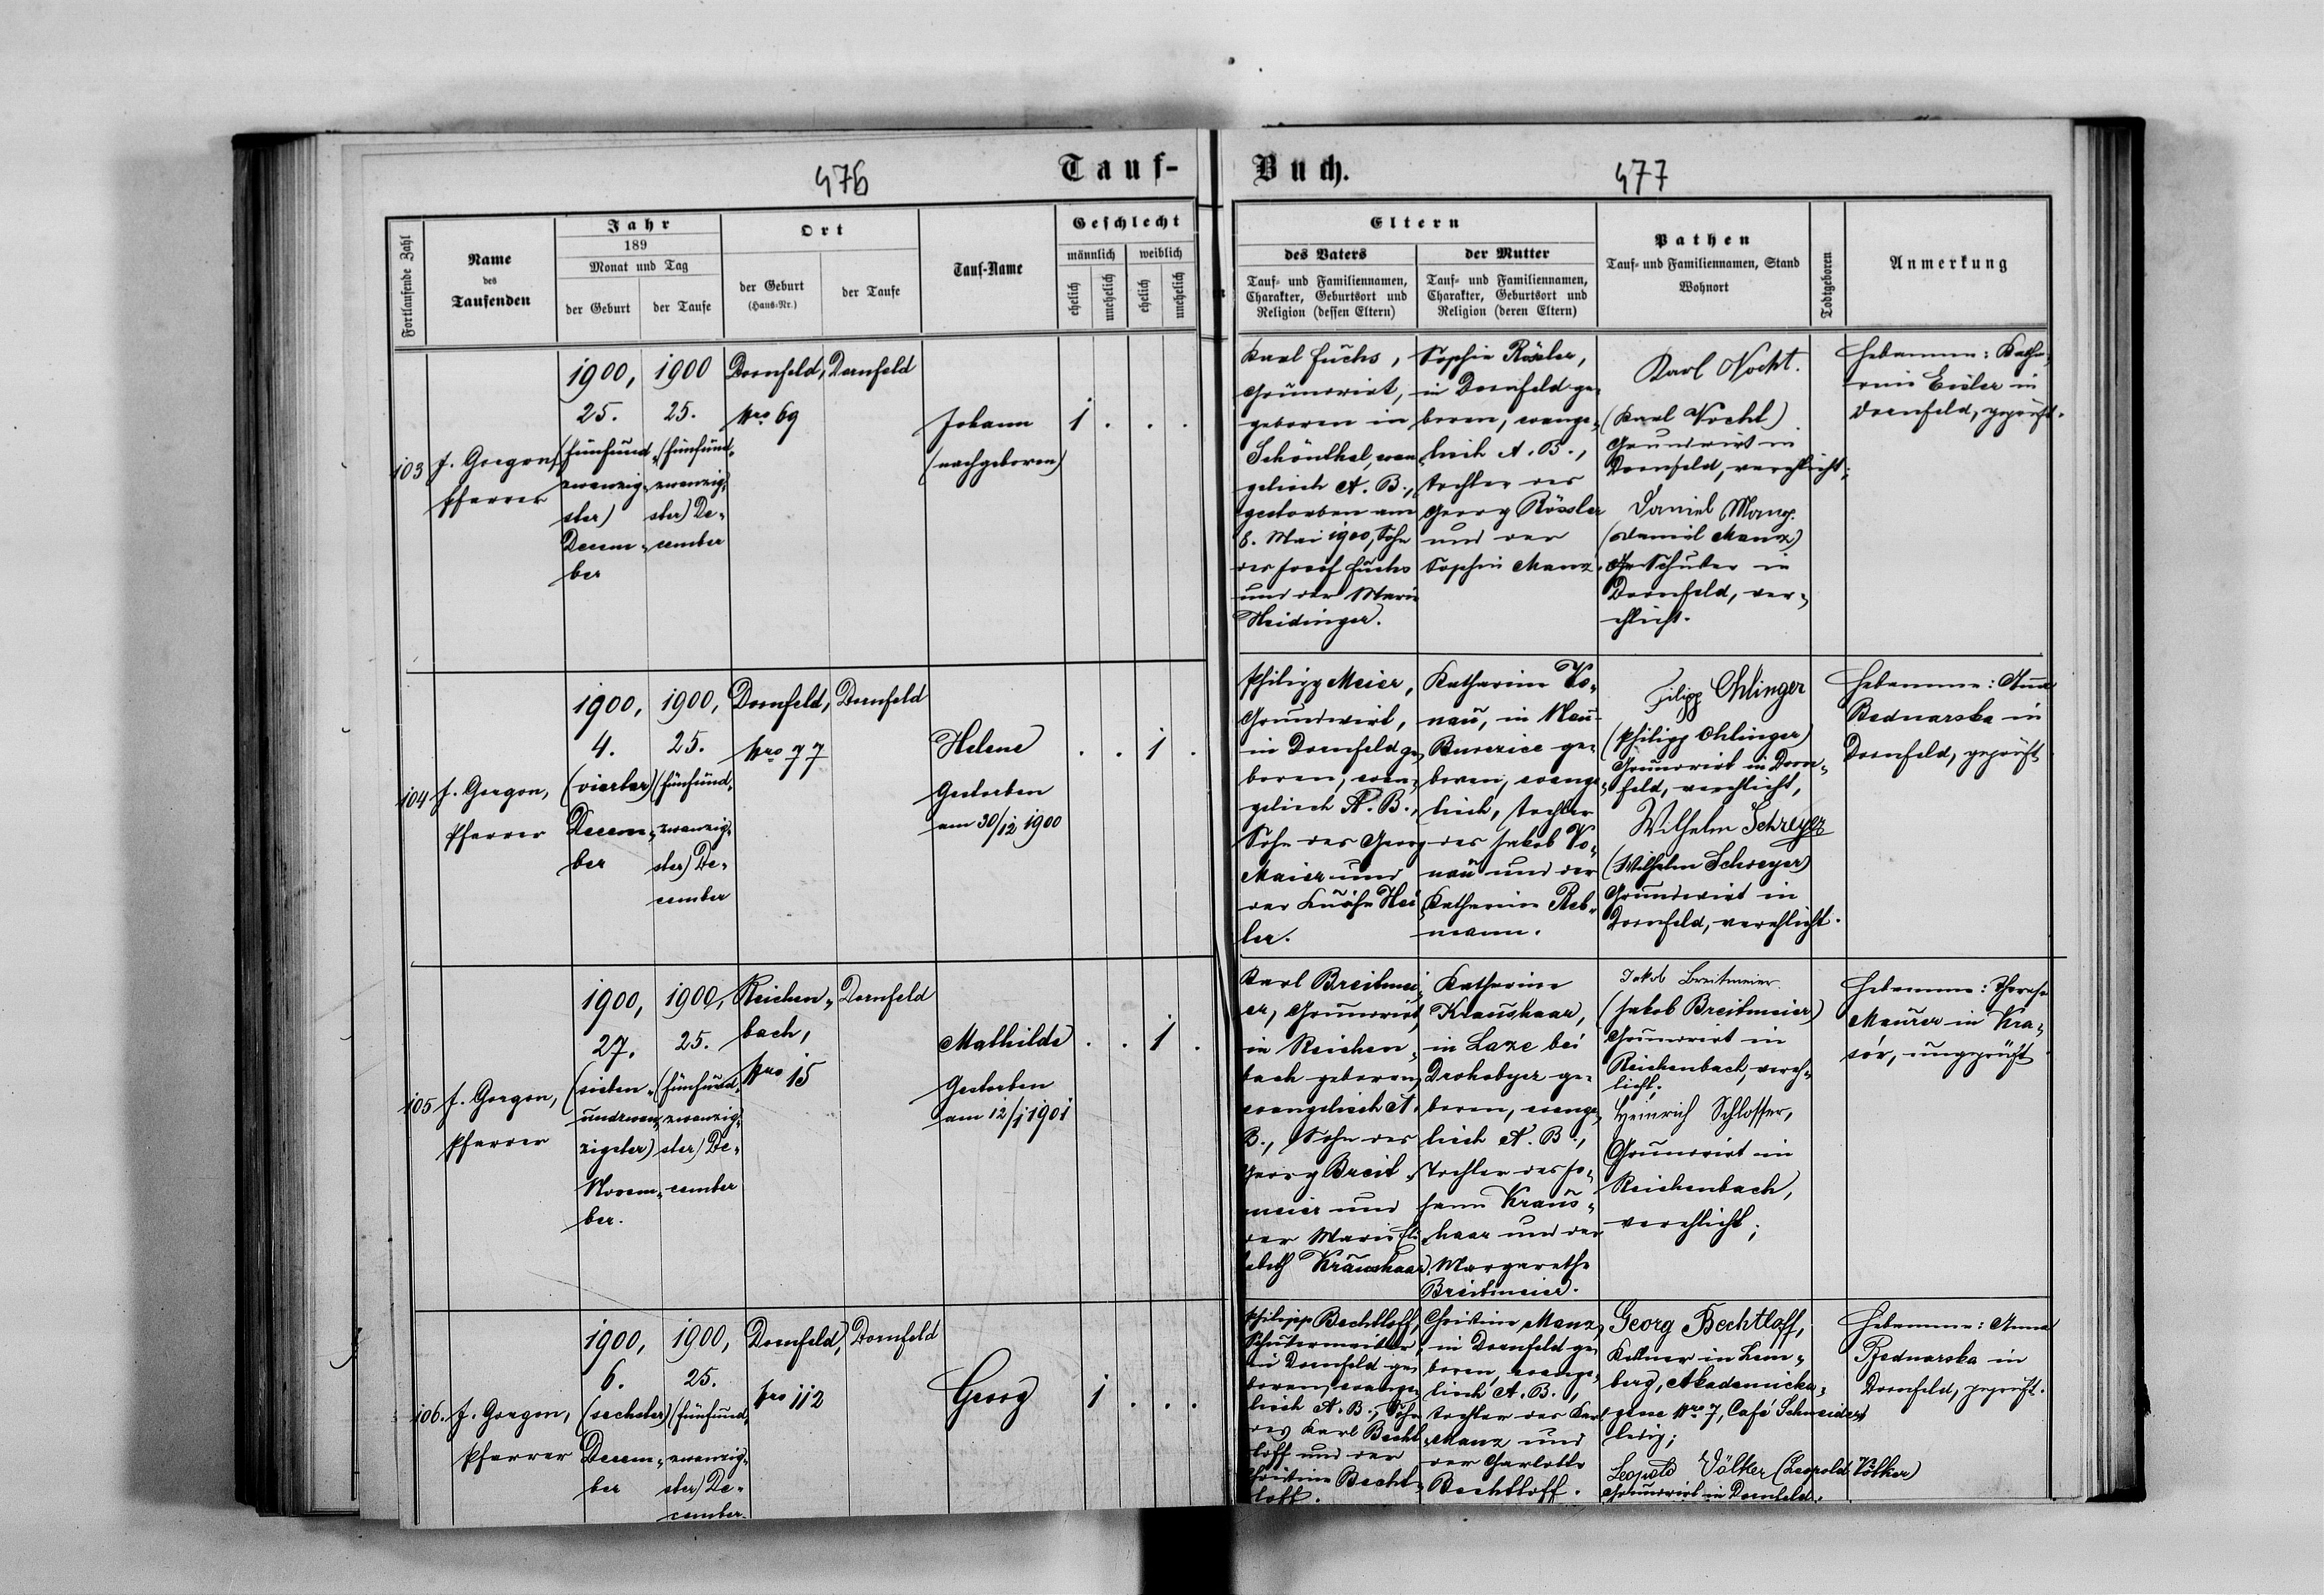 476
Tauf-
Buch.
477
Fortlaufende Zahl
Name
des
Taufenden
Jahr
189
Monat und Tag
der Geburt
der Taufe
Ort
der Geburt
(Haus-Nr.)
der Taufe
Tauf-Name
Geschlecht
männlich
weiblich
ehelich
unehelich
ehelich
unehelich
Eltern
des Vaters
Tauf- und Familiennamen,
Charakter, Geburtsort und
Religion (dessen Eltern)
der Mutter
Tauf- und Familiennamen,
Charakter, Geburtsort und
Religion (deren Eltern)
Pathen
Tauf- und Familiennamen, Stand
Wohnort
Todtgeboren
Anmerkung
103
J. Gorgon,
Pfarrer
1900,
25.
(fünfund„
zwanzig„
ster)
Decem„
ber
1900
25.
(fünfund„
zwanzig„
ster) De„
cember
Dornfeld,
Nro 69
Dornfeld
Johann
(nachgeboren)
1 . . .
Karl Fuchs,
Grundwirt,
geboren in
Schönthal, evan
gelisch A. B.,
gestorben am
8. Mai 1900, Sohn
des Josef Fuchs
und der Marie
Heidinger.
Sophie Rösler,
in Dornfeld ge„
boren, evange„
lisch A. B.,
Tochter des
Georg Rössler
und der
Sophie Manz.
Karl Nocht.
(Karl Nocht)
Grundwirt in
Dornfeld, verehlicht;
Daniel Manz.
(Daniel Manz)
Schuster in
Dornfeld, ver„
ehlicht.
Hebamme: Katha„
rine Eisler in
Dornfeld, geprüft.
104
J. Gorgon,
Pfarrer
1900,
4.
(vierter)
Decem„
ber
1900,
25.
(fünfund„
zwanzig„
ster) De„
cember
Dornfeld,
Nro 77
Dornfeld
Helene
Gestorben
am 30/12 1900
. . 1 .
Philipp Meier,
Grundwirt,
in Dornfeld ge„
boren, evan„
gelisch A. B.,
Sohn des Georg
Maier und
der Luise Hei
ler.
Katharine Ko„
nau, in Neu-
ge„
boren, evange„
lisch, Tochter
des Jakob Ko„
nau und der
Katharine Reb„
mann.
Filipp Ohlinger
(Philipp Ohlinger)
Grundwirt in Dorn„
feld, verehlicht,
Wilhelm Schreyer
(Wilhelm Schreyer)
Grundwirt in
Dornfeld, verehlicht.
Hebamme: Anna
Bednarska in
Dornfeld, geprüft
105
J. Gorgon,
Pfarrer
1900,
27.
(sieben„
undzwan„
zigster)
Novem„
ber.
1900,
25.
(fünfund„
zwanzig„
ster) De„
cember
Reichen„
bach,
Nro 15
Dornfeld
Mathilde
Gestorben
am 12/1 1901
. . 1 .
Karl Breitmei„
er, Grundwirt,
in Reichen„
bach geboren,
evangelisch A.
B., Sohn des
Georg Breit„
meier und
der Marie Eli
sabeth Kraushaar.
Katharine
Kraushaar,
in Laze bei
Drohobycz ge„
boren, evange„
lisch A. B.,
Tochter des Jo„
hann Kraus„
haar und der
Margarethe
Breitmeier.
Jakob Breitmeier.
(Jakob Breitmeier)
Grundwirt in
Reichenbach, vereh„
licht;
Heinrich Schlosser,
Grundwirt in
Reichenbach,
verehlicht;
Hebamme: Therese
Maurer in Kra„
sów, ungeprüft
106.
J. Gorgon,
Pfarrer
1900,
6.
(sechster)
Decem„
ber
1900,
25.
(fünfund„
zwanzig„
ster) De„
cember.
Dornfeld,
Nro 112
Dornfeld
Georg
1 . . .
Philipp Bechtloff,
Schustermeister,
in Dornfeld ge„
boren, evange„
lisch A. B., Sohn
des Karl Becht„
loff und der
Christine Becht„
loff.
Christine Manz,
in Dornfeld ge„
boren, evange„
lisch A. B.,
Tochter des Karl
Manz und
der Charlotte
Bechtloff.
Georg Bechtloff,
Kellner in Lem„
berg, Akademicka„
gasse Nro 7, Café Schneider,
ledig;
Leopold Völker (Leopold Völker)
Grundwirt in Dornfeld.
Hebamme: Anna
Bednarska in
Dornfeld, geprüft.